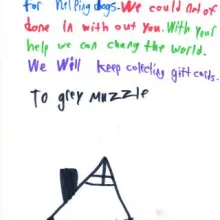 for helping dogs. We could not of
done in with out you. With your
help we can chang the world.
We Will keep colecting gift cards.
To grey muzzle